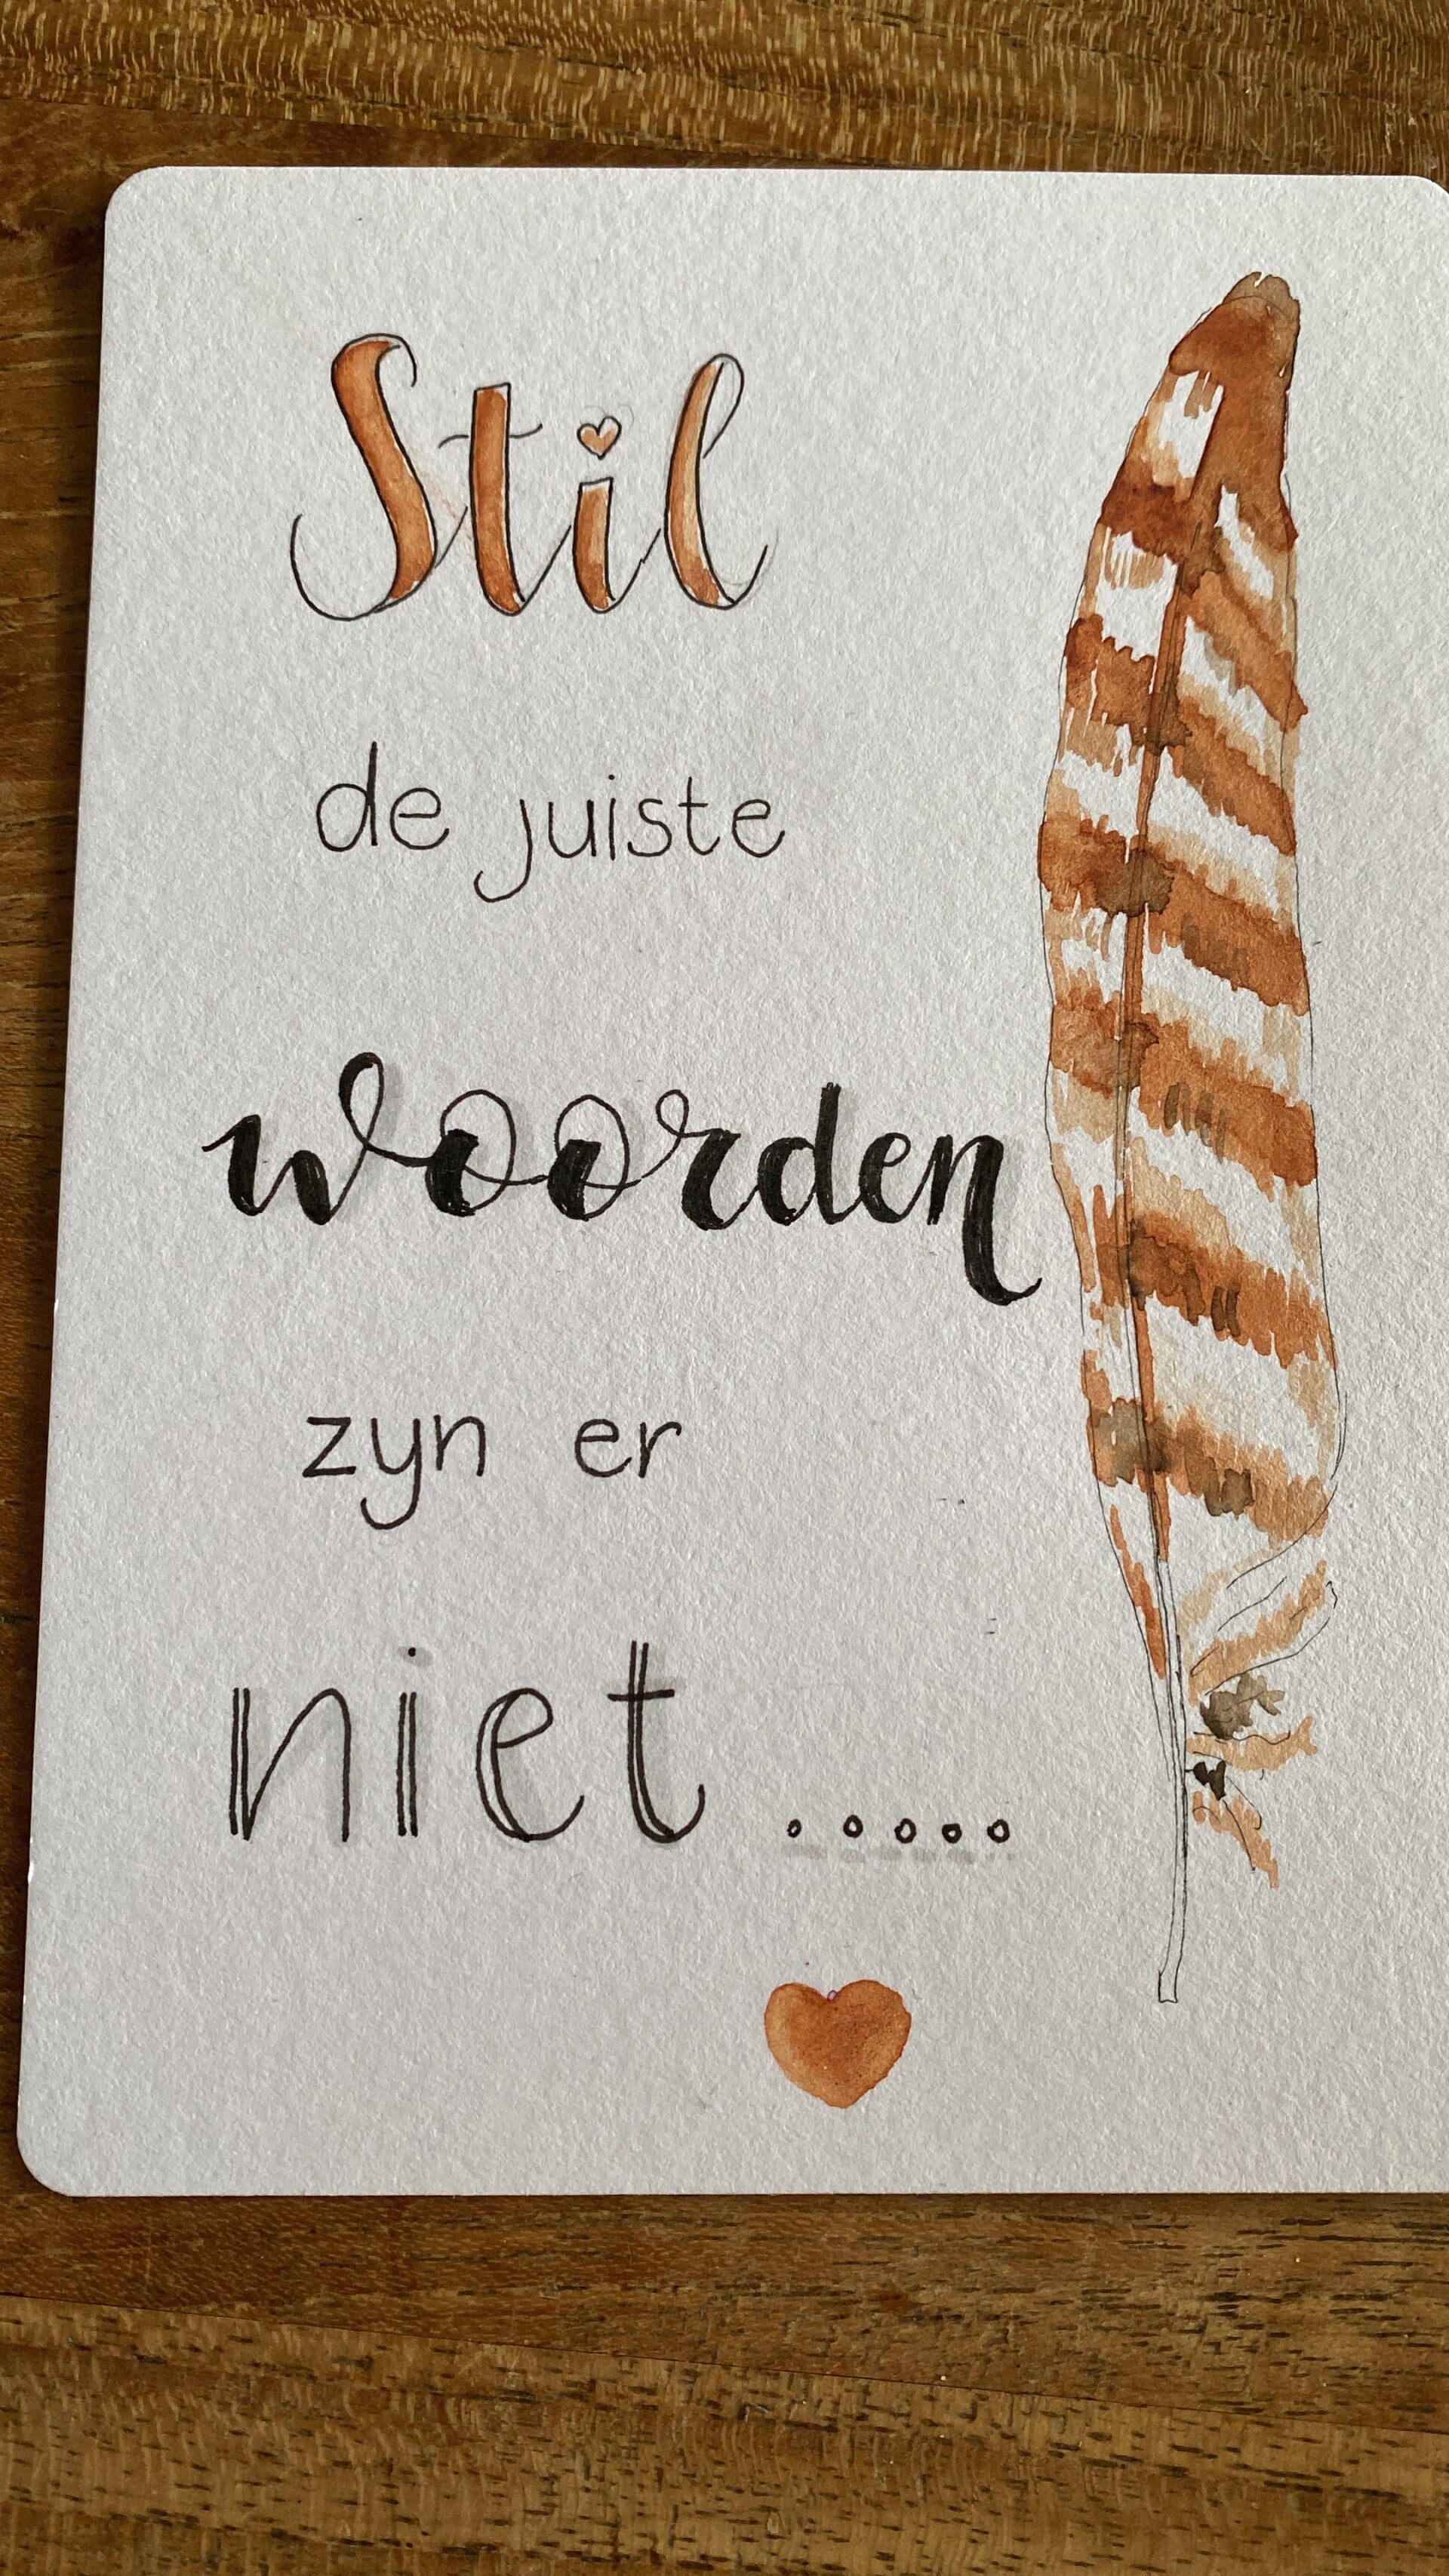 Stil
de juiste
woorden
zyn er
niet .....